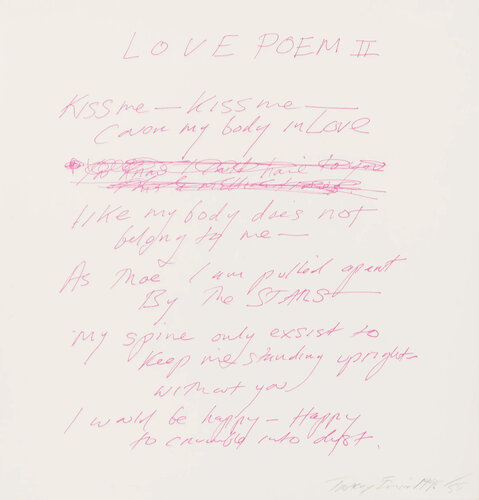 LOVE POEM II
Kiss me — Kiss me —
Cover my body in Love
like my body does not
belong to me —
As thoe I am pulled apart
By the STARS
My spine only exsist to
Keep me standing upright
without you
I would be happy — Happy
to crumble into dust.